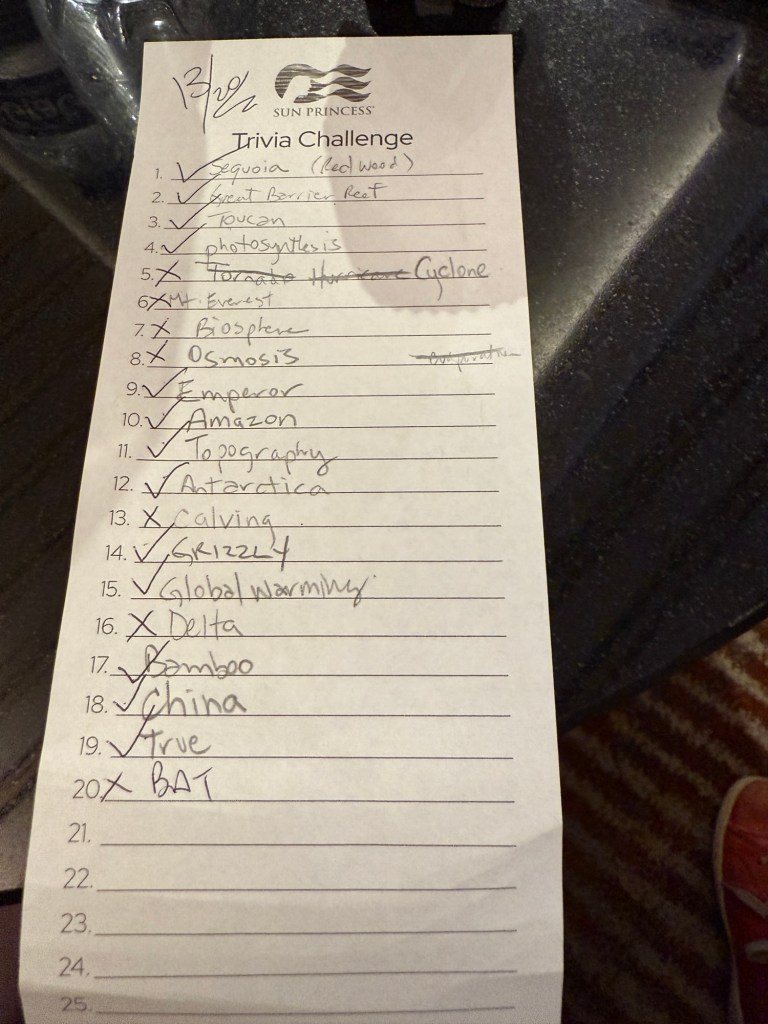 13/20
SUN PRINCESS
Trivia Challenge
1. Sequoia (Redwood)
2. Great Barrier Reef
3. Toucan
4. photosynthesis
5. Tornado Hurricane Cyclone
6 Mt. Everest
7. Biosphere
8. Osmosis
9. Emperor
10. Amazon
11. Topography
12. Antarctica
13. Calving
14. GRIZZLY
15. Global Warming
16. Delta
17. Bamboo
18. China
19. True
20. BAT
21.
22.
23.
24.
25.